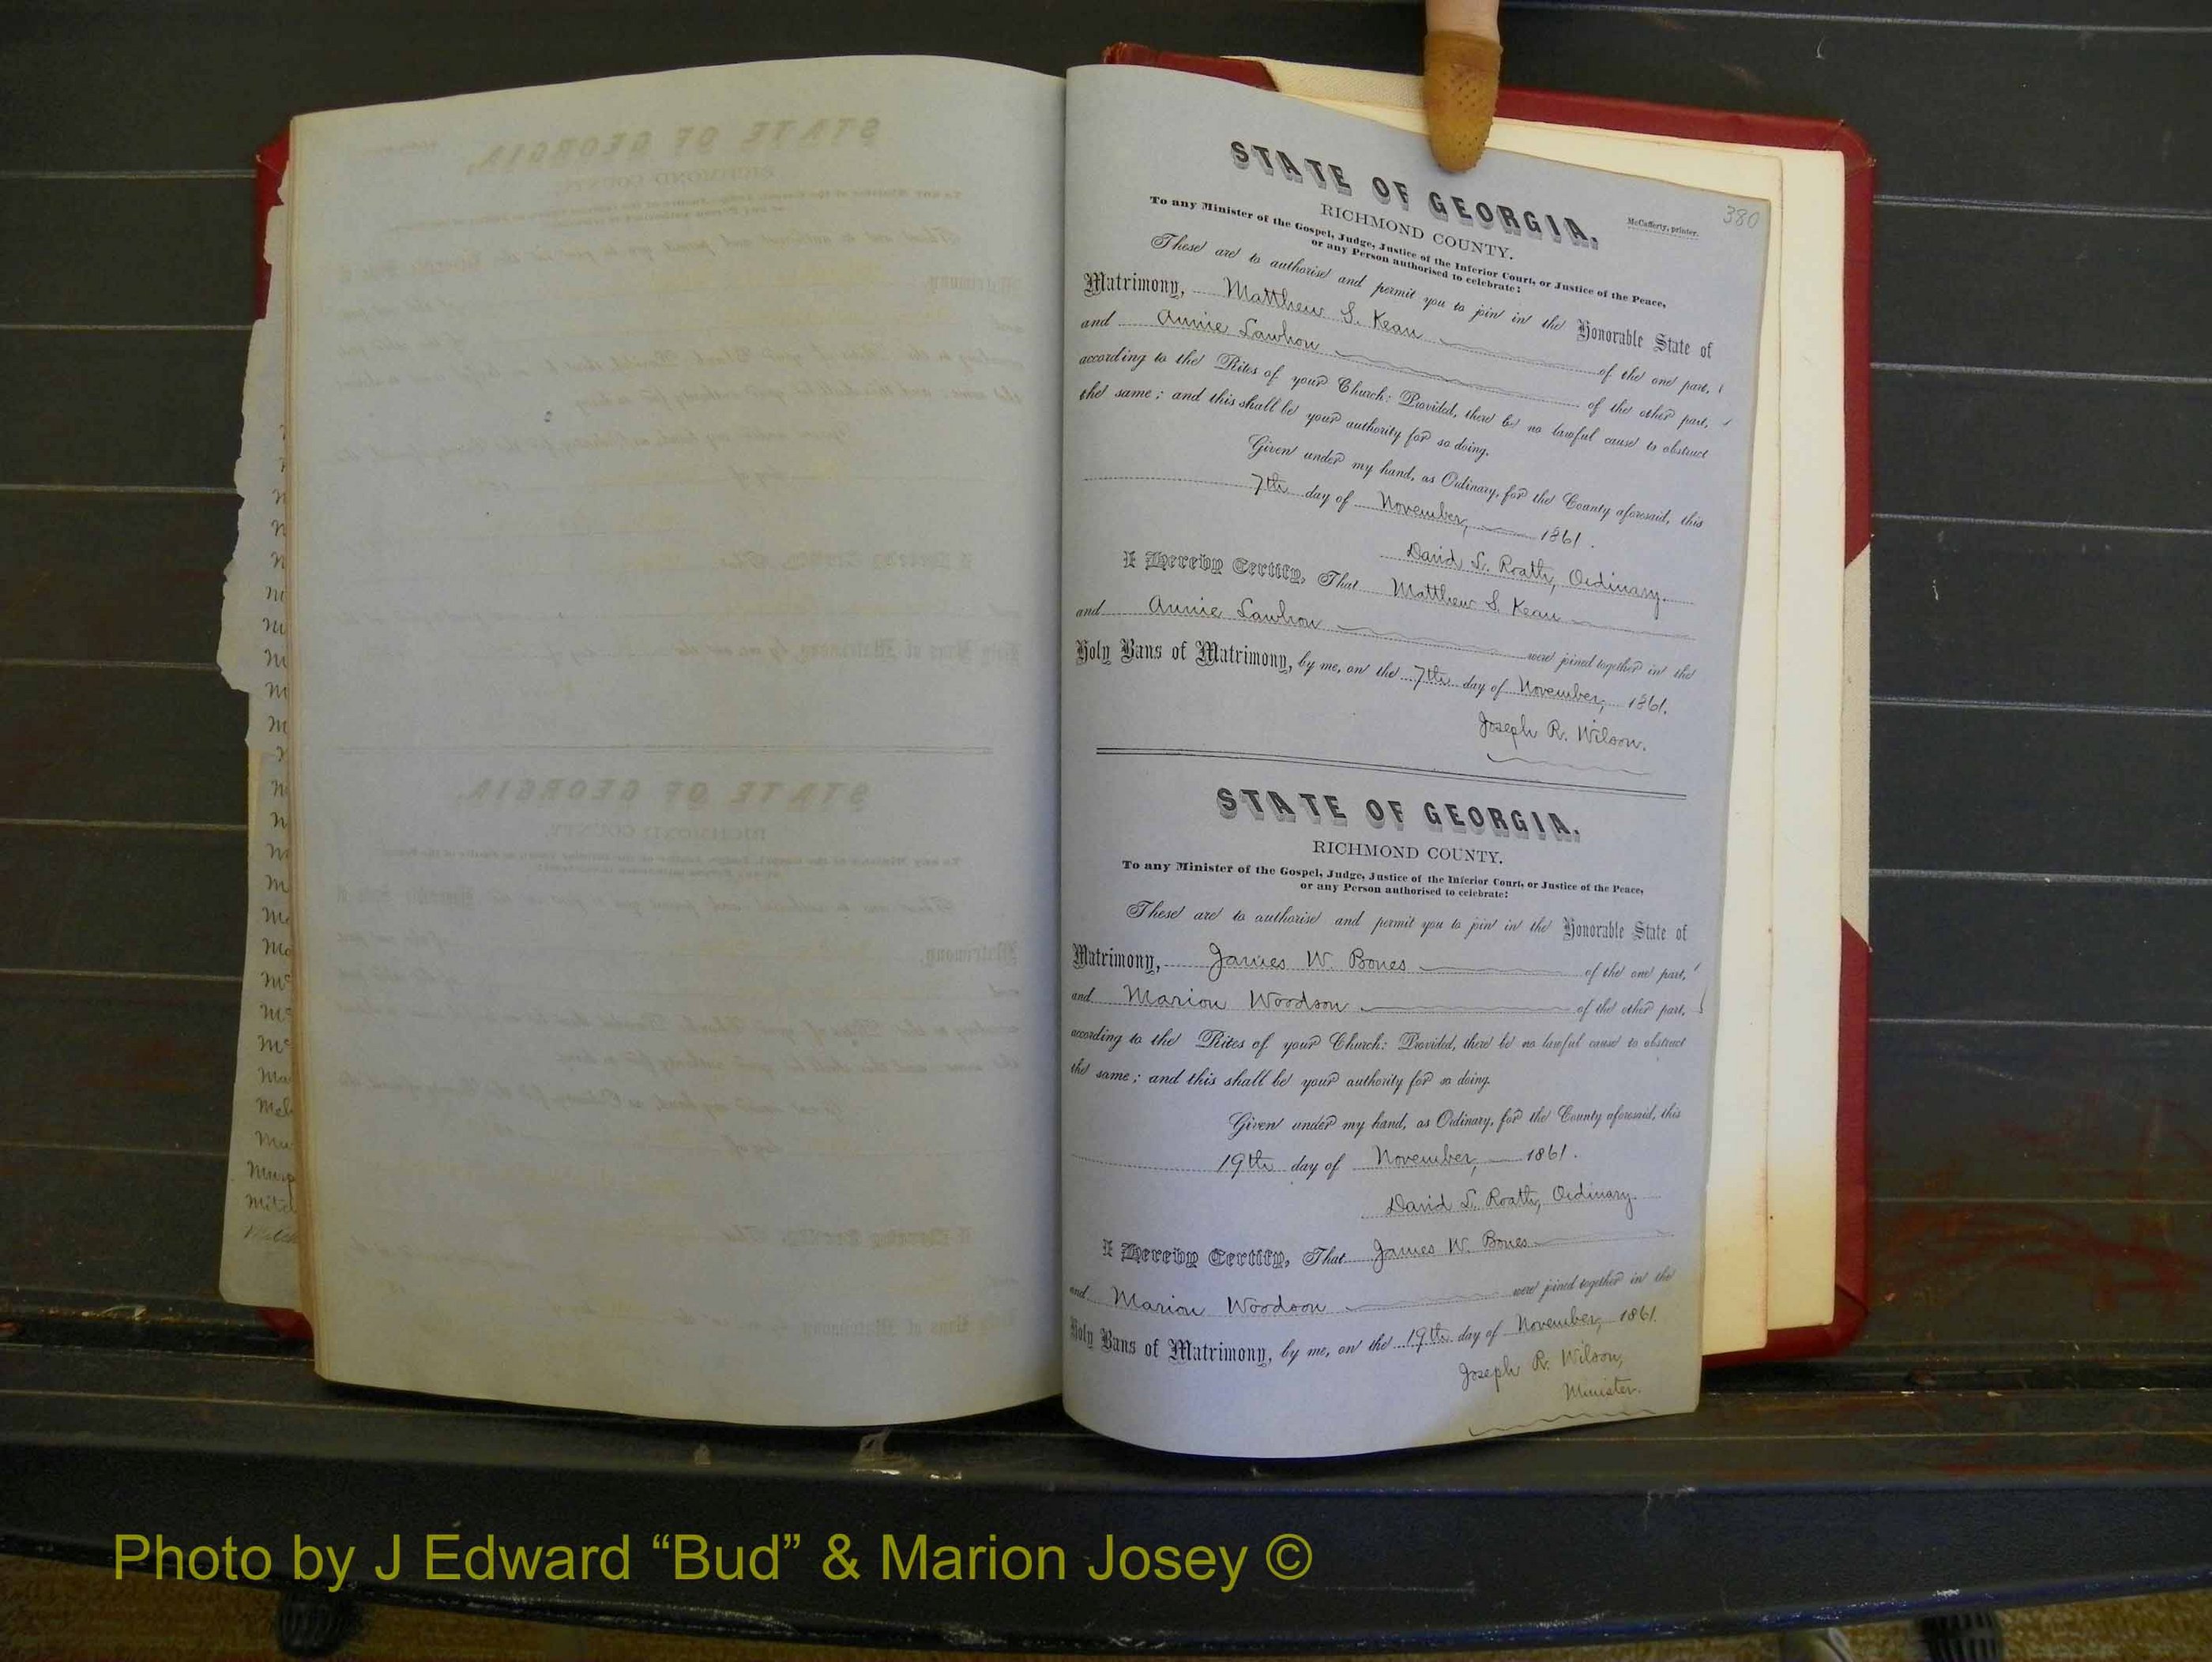 380
McCafferty, printer.
STATE OF GEORGIA.
RICHMOND COUNTY.
To any Minister of the Gospel, Judge, Justice of the Inferior Court, or Justice of the Peace,
or any Person authorised to celebrate:
These are to authorise and permit you to join in the Honorable State of
Matrimony, Matthew S. Kean of the one part,
and Annie Lawhon of the other part,
according to the Rites of your Church: Provided, there be no lawful cause to obstruct
the same; and this shall be your authority for so doing.
Given under my hand, as Ordinary, for the County aforesaid, this
7th day of November, 1861.
David L. Roath, Ordinary.
I Hereby Certify, That Matthew S. Kean
and Annie Lawhon were joined together in the
Holy Bans of Matrimony, by me, on the 7th day of November, 1861.
Joseph R. Wilson.
STATE OF GEORGIA.
RICHMOND COUNTY.
To any Minister of the Gospel, Judge, Justice of the Inferior Court, or Justice of the Peace,
or any Person authorised to celebrate:
These are to authorise and permit you to join in the Honorable State of
Matrimony, James W. Bones of the one part,
and Marion Woodson of the other part,
according to the Rites of your Church: Provided, there be no lawful cause to obstruct
the same; and this shall be your authority for so doing.
Given under my hand, as Ordinary, for the County aforesaid, this
19th day of November, 1861.
David L. Roath, Ordinary.
I Hereby Certify, That James W. Bones
and Marion Woodson were joined together in the
Holy Bans of Matrimony, by me, on the 19th day of November, 1861.
Joseph R. Wilson,
Minister.
Photo by J Edward “Bud” & Marion Josey ©